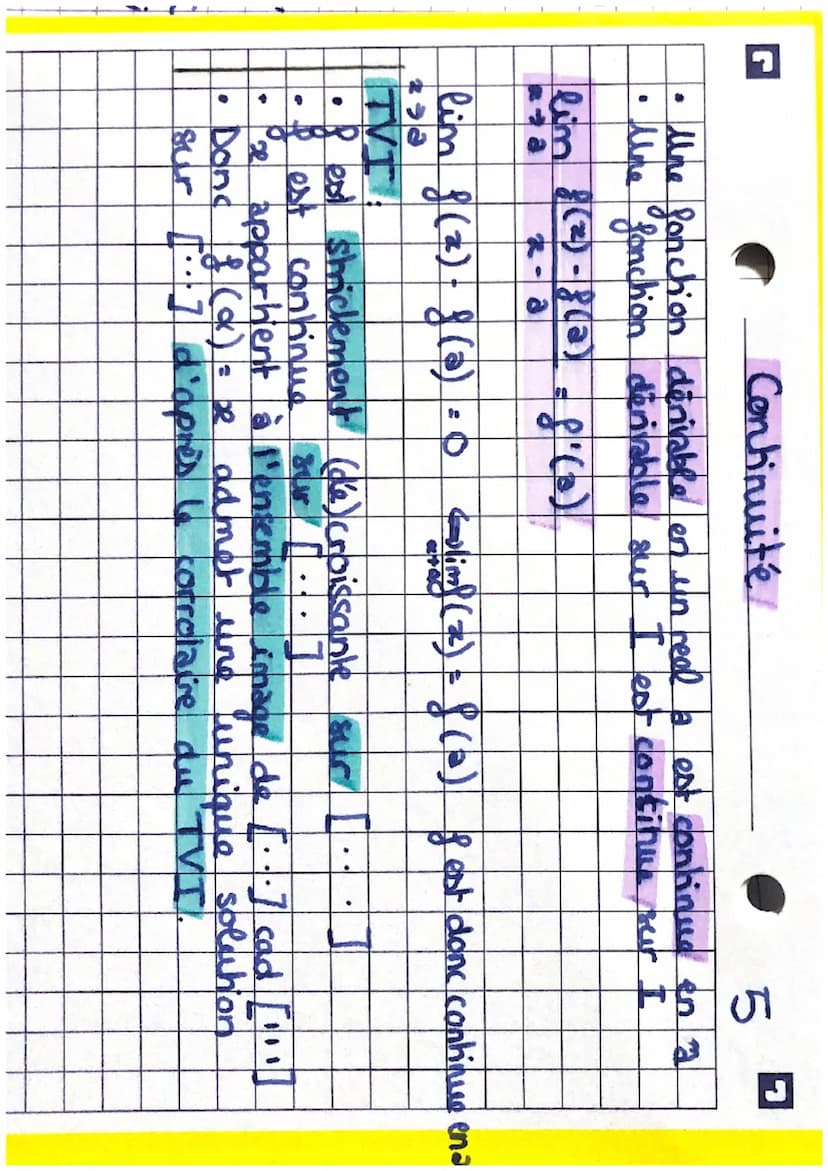 Continuité 5
• Une fonction dérivable en un reel a est continue en a
• Une fonction dérivable sur I est continue sur I
lim f(x) - f(a) / x - a = f'(a)
x → a
lim f(x) - f(a) = 0 ⇔ lim f(x) = f(a) f est donc continue en a
x → a x → a
TVI :
• f est strictement (dé)croissante sur [....]
• f est continue sur [....]
• x appartient à l'ensemble image de [...] cad [....]
• Donc f(α) = x admet une unique solution
sur [...] d'après le corrolaire du TVI.